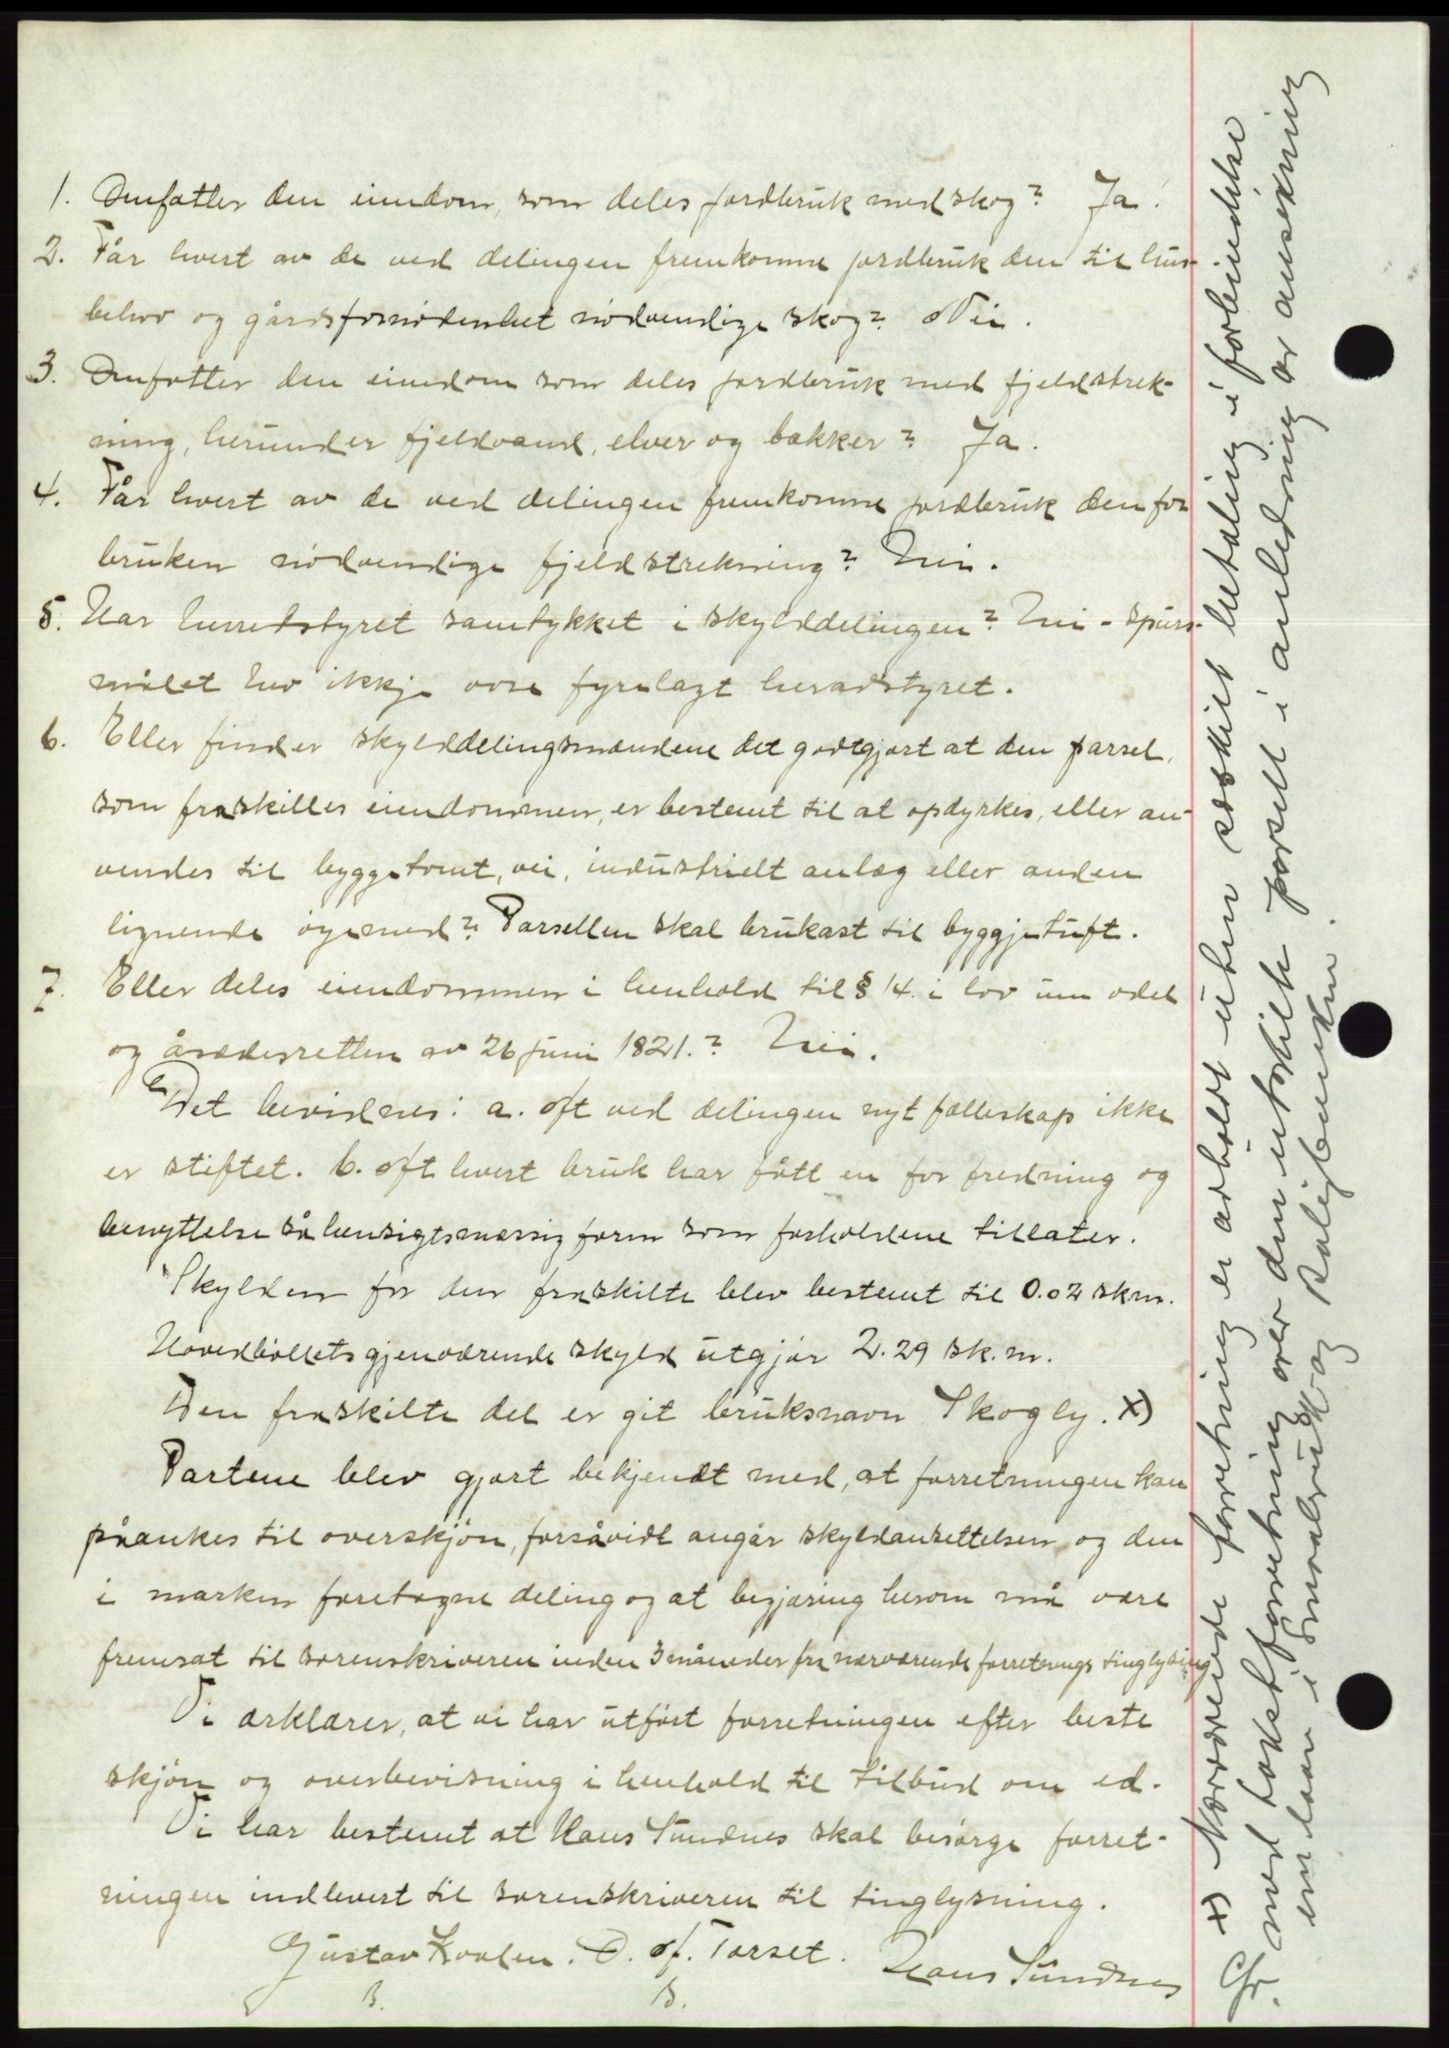 1. Omfatter den eiendom, som deles jordbruk med skog? Ja!
2. Får hvert av de ved delingen fremkomne jordbruk den til hus-
behov og gårdsfornødenhet nødvendige skog? Nei.
3. Omfatter den eiendom som deles jordbruk med fjeldstrek-
ning, herunder fjeldvand, elver og bækker? Ja.
4. Får hvert av de ved delingen fremkomne jordbruk den for
bruken nødvendige fjeldstrekning? Nei.
5. Har herredstyret samtykket i skylddelingen? Nei - Spurs-
målet hev ikkje vore fyrelagt heradstyret.
6. Eller finder skylddelingsmændene det godtgjort at den parsel,
som fraskilles eiendommen, er bestemt til at opdyrkes, eller an-
vendes til byggetomt, vei, industrielt anlæg eller anden
lignende øiemed? Parsellen skal brukast til byggjetuft.
7. Eller deles eiendommen i henhold til § 14. i lov um odel
og åsædesretten av 26 juni 1821.? Nei.
Det bevidnes: a. At ved delingen nyt fælleskap ikke
er stiftet. b. At hvert bruk har fått en for fredning og
benyttelse så hensigtsmæssig form som forholdene tillater.
Skylden for den fraskilte blev bestemt til 0.02 skm.
Hovedbølets gjenværende skyld utgjør 2.29 sk.m.
Den fraskilte del er git bruksnavn Skogly. x)
Partene blev gjort bekjendt med, at forretningen kan
påankes til overskjøn, forsåvidt angår skyldansettelsen og den
i marken foretagne deling og at begjæring herom må være
fremsat til sorenskriveren inden 3 måneder fra nærværende forretnings tinglysing
Vi ærklærer, at vi har utført forretningen efter beste
skjøn og overbevisning i henhold til tilbud om ed.
Vi har bestemt at Hans Sundnes skal besørge forret-
ningen indlevert til sorenskriveren til tinglysning.
Gustav Kvalen. D. A. Tarset. Hans Sundnes
B. B.
x) Nærværende forretning er avholdt uten særskilt betaling i forbindelse
med takstforretning over den utskilte parsell i anledning av ansøkning
om laan i Småbruk og Boligbanken.